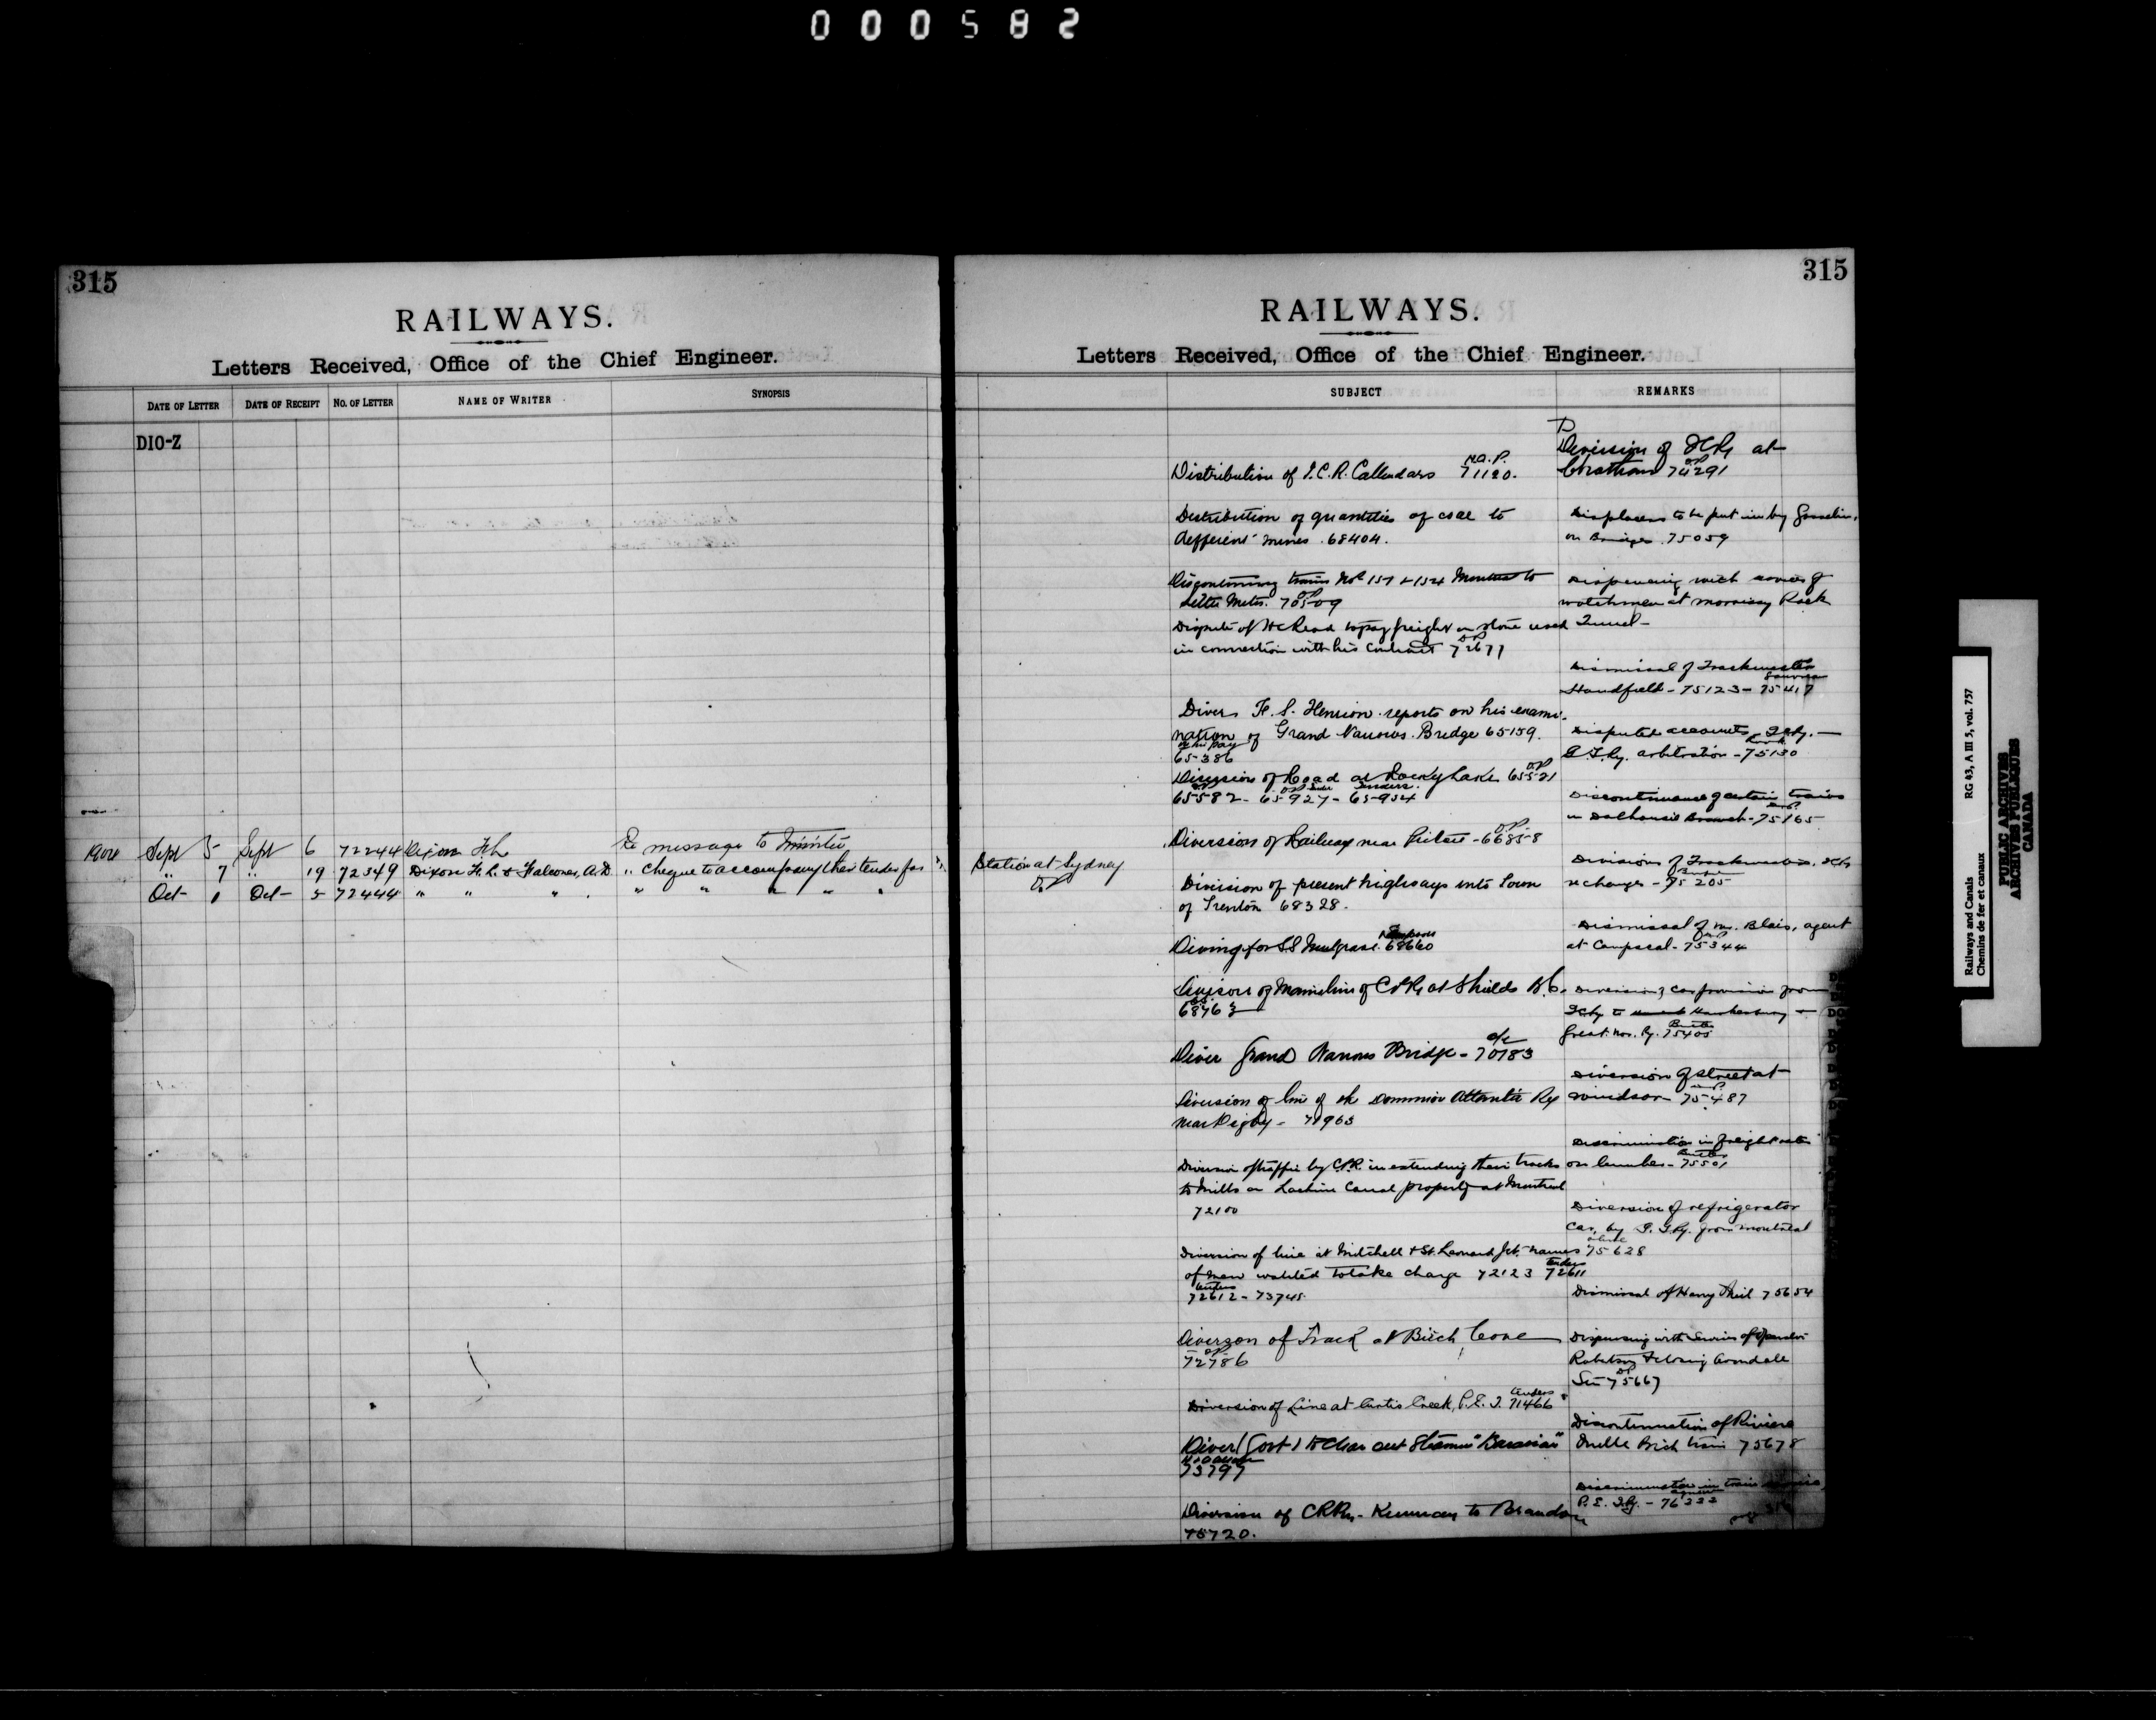 000582
315
RAILWAYS.
Letters Received, Office of the Chief Engineer.
DATE OF LETTER DATE OF RECEIPT NO. OF LETTER NAME OF WRITER SYNOPSIS
DIO-Z
Sept 5 Sept 6 72244 Dixon Re message to Minister
" 7 " 19 72349 Dixon H. L. & Falconer, A.D. " Cheque to accompany their tender for
Oct Oct 5 72444 " " " " " " " "
315
RAILWAYS.
Letters Received, Office of the Chief Engineer.
SUBJECT REMARKS
Station at Sydney
Distribution of I.C.R. Callendars 71120.
Distribution of quantities of coal to
different mines. 68404.
Discontinuing trains Nos 151 & 154 Montreal to
Little Metis. 70509
Dispute of Read to pay freight on stone used
in connection with his contract 72677
Divers Henrion reports on his exami-
nation of Grand Narrows Bridge 65159.
65386
Diversion of Road at Rocky Lake 65521
65582 - 65927 - 65954
Diversion of Railway near Pictou - 66858
Division of present highways into Town
of Trenton 68328.
Diving for S.S. Mulgrave. 68660
of Main line of CPR at Shields B.C.
Diver Grand Narrows Bridge - 70783
Diversion of line of the Dominion Atlantic Ry
near Digby -
Diversion of traffic by C.P.R. in extending their tracks
to Mills on Lachine Canal property at Montreal
72100
Diversion of line at Mitchell & St. Leonard Jct. names
of men wanted to take charge 72123 72611
72612 - 73745
Diverson of Track at Birch Cove
72786
Diversion of Line at Curtis Creek, P.E.I. 71466
Diver (Cost) Steamer
73797
Diversion of CPRy - Kemnay to Brandon
75720.
Diversion of ICRy at
Chatham 74291
to be put in by Gosselin,
on Bridges 75059
Dispensing with services of
watchmen at Morrissy Rock
Tunnel -
Dismissal of Trackmaster
Handfield - 75123 - 75417
Disputed accounts, ICRy. -
G.T.Ry. arbitration - 75130
Discontinuance of certain trains
on Dalhousie Branch - 75165
Divisions of
re changes - 75205
Dismissal of Mr. Blais, agent
at Causpscal - 75344
Great Nor. Ry. 75405
Diversion of street at
Windsor - 75487
Discrimination in freight rates
on lumber - 75501
Diversion of refrigerator
car, by G.T.Ry. from Montreal
75628
Dismissal of Harry 75654
Dispensing with Services of Operator
75667
Discontinuation of Riviere
Ouelle train 75678
Discrimination in train
P.E.I.Ry. - 76333
Railways and Canals RG 43, A III 5, vol. 757
Chemins de fer et canaux
PUBLIC ARCHIVES
ARCHIVES PUBLIQUES
CANADA